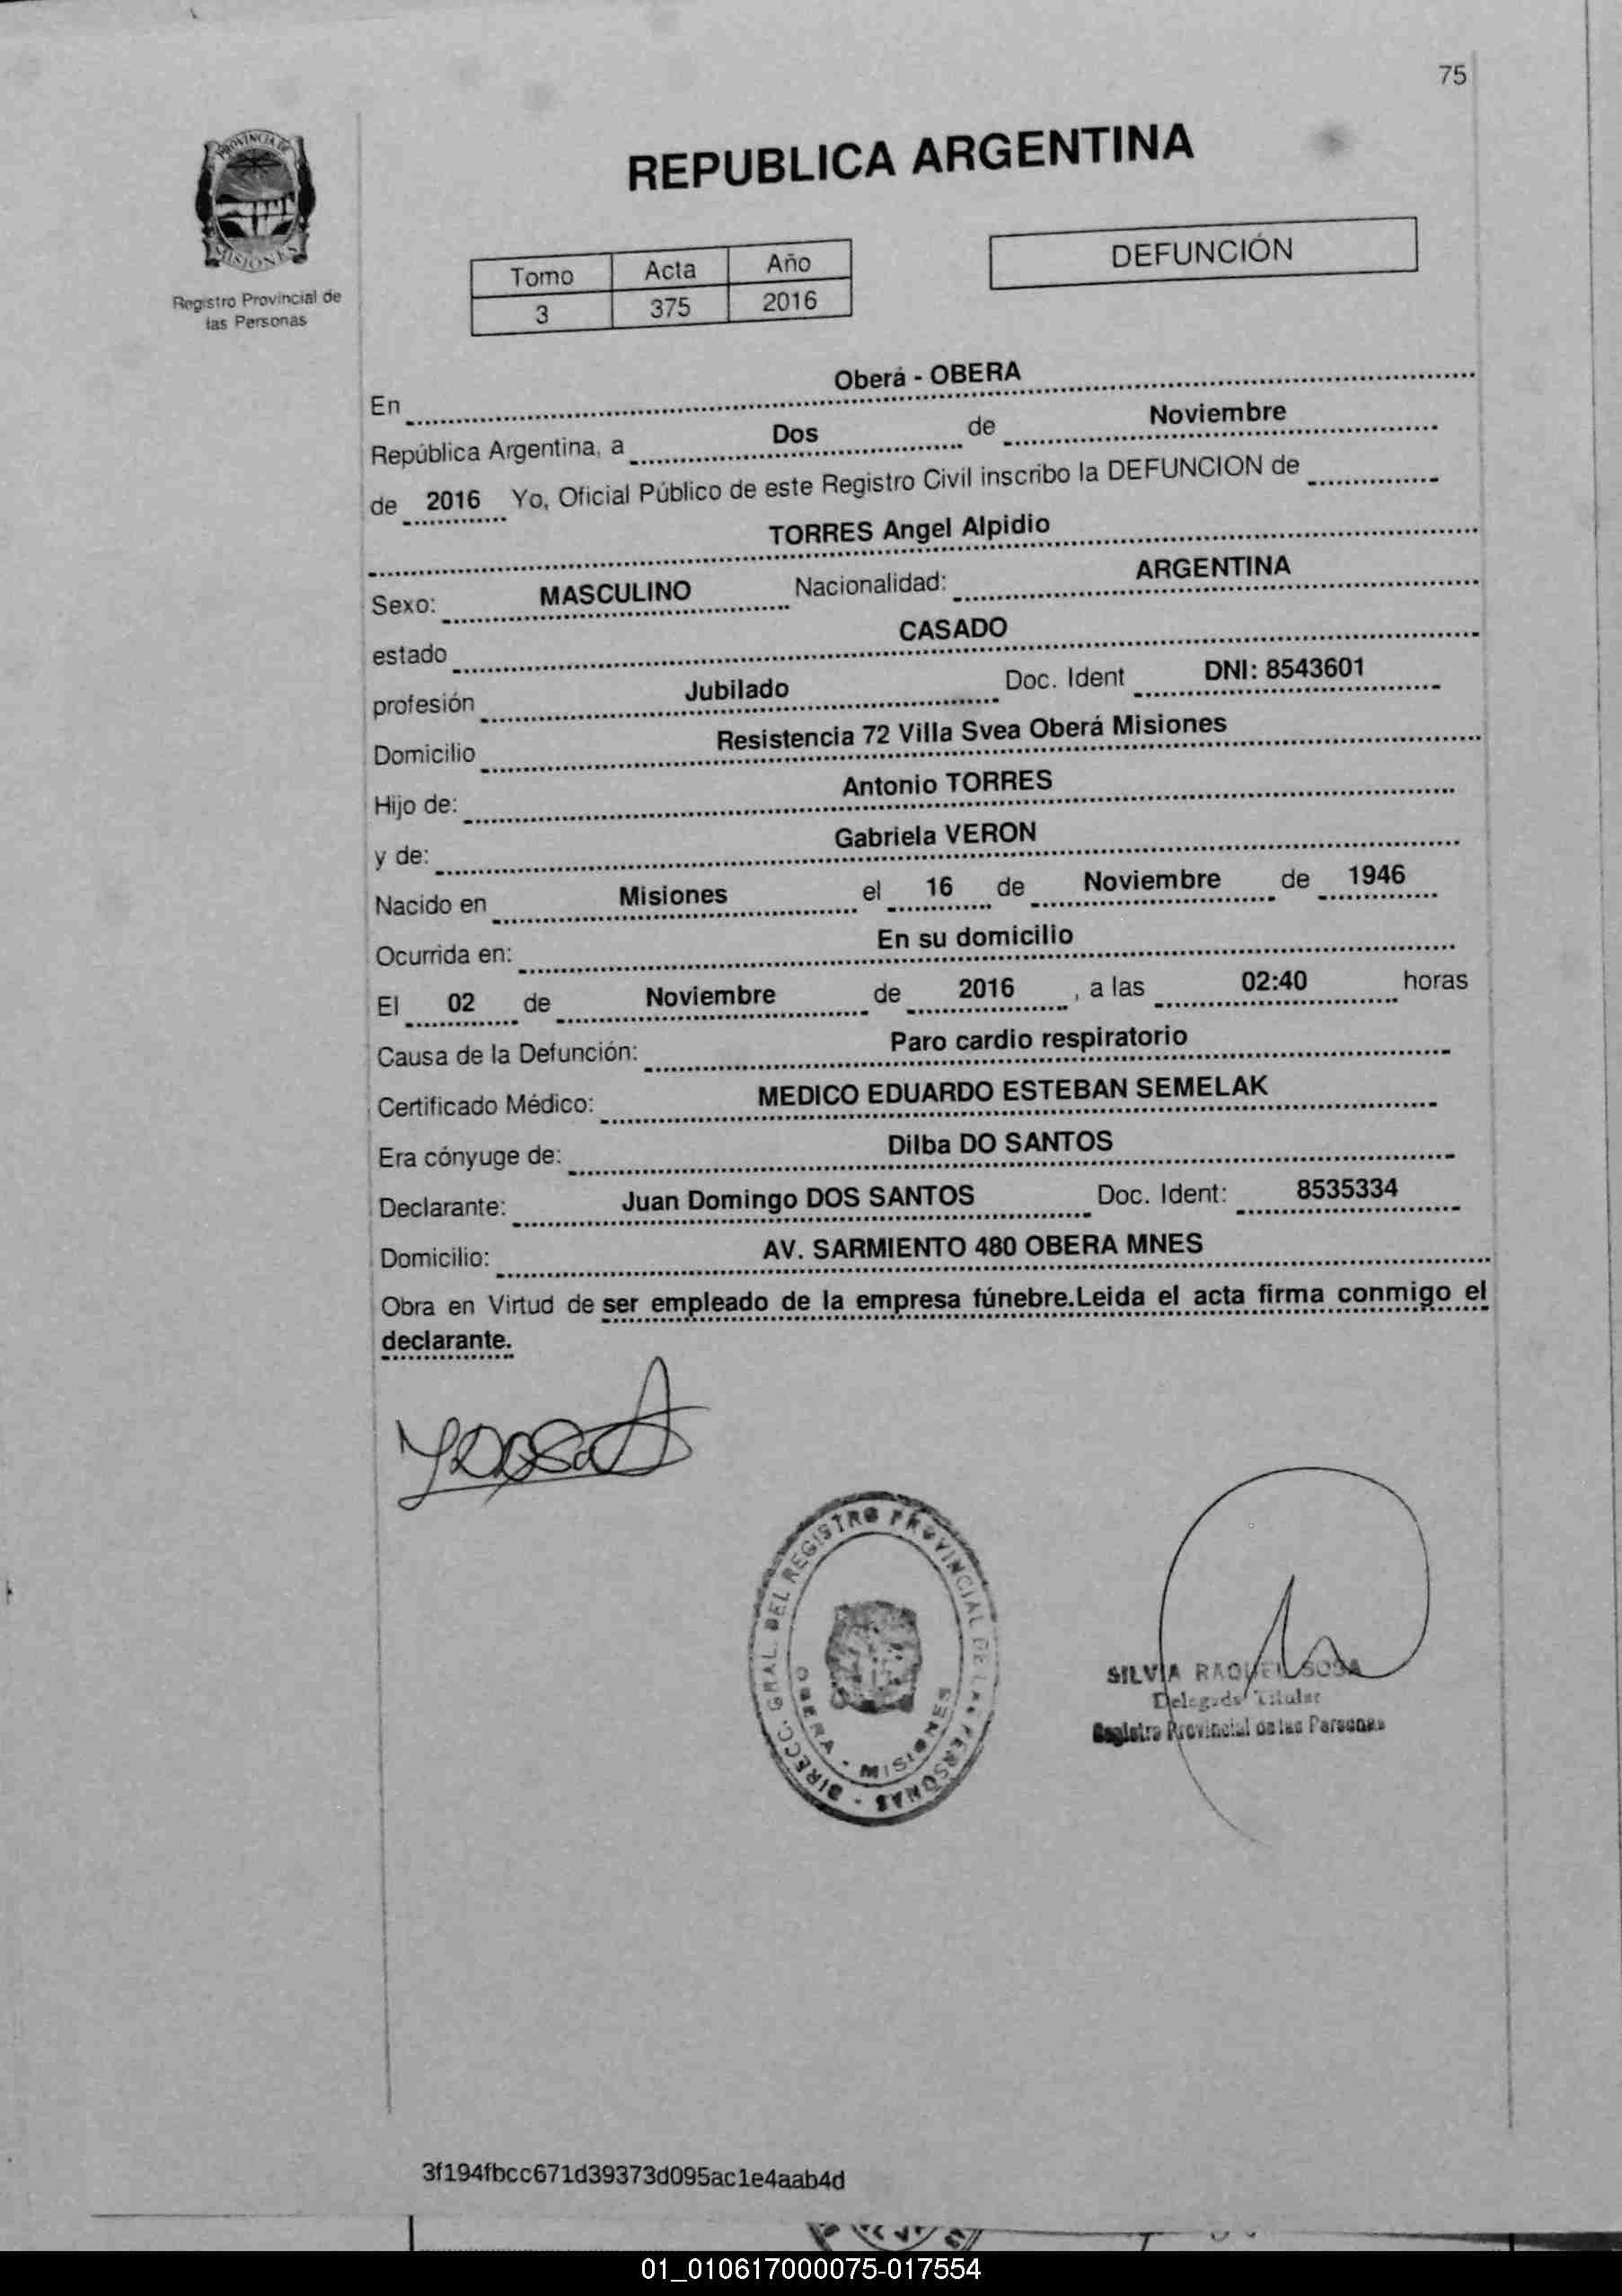 75
PROVINCIA DE
MISIONES
Registro Provincial de
las Personas
REPUBLICA ARGENTINA
Tomo Acta Año
3 375 2016
DEFUNCIÓN
En Oberá - OBERA
República Argentina, a Dos de Noviembre
de 2016 Yo, Oficial Público de este Registro Civil inscribo la DEFUNCION de
TORRES Angel Alpidio
Sexo: MASCULINO Nacionalidad: ARGENTINA
estado CASADO
profesión Jubilado Doc. Ident DNI: 8543601
Domicilio Resistencia 72 Villa Svea Oberá Misiones
Hijo de: Antonio TORRES
y de: Gabriela VERON
Nacido en Misiones el 16 de Noviembre de 1946
Ocurrida en: En su domicilio
El 02 de Noviembre de 2016 , a las 02:40 horas
Causa de la Defunción: Paro cardio respiratorio
Certificado Médico: MEDICO EDUARDO ESTEBAN SEMELAK
Era cónyuge de: Dilba DO SANTOS
Declarante: Juan Domingo DOS SANTOS Doc. Ident: 8535334
Domicilio: AV. SARMIENTO 480 OBERA MNES
Obra en Virtud de ser empleado de la empresa fúnebre.Leida el acta firma conmigo el
declarante.
DIRECC. GRAL. DEL REGISTRO PROVINCIAL DE LAS PERSONAS -
OBERA - MISIONES
SILVIA RAQUEL SOSA
Delegada Titular
Registro Provincial de las Personas
3f194fbcc671d39373d095ac1e4aab4d
01_010617000075-017554